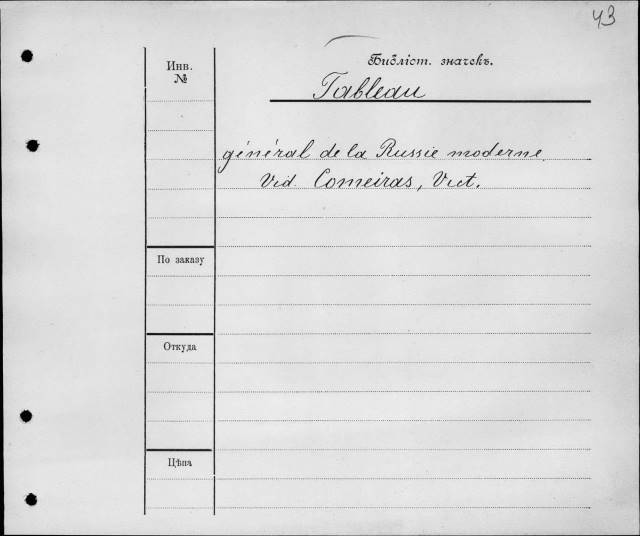 43
Инв. №
Библіот. значекъ.
Tableau
général de la Russie moderne.
Vid. Comeiras, Vict.
По заказу
Откуда
Цѣна